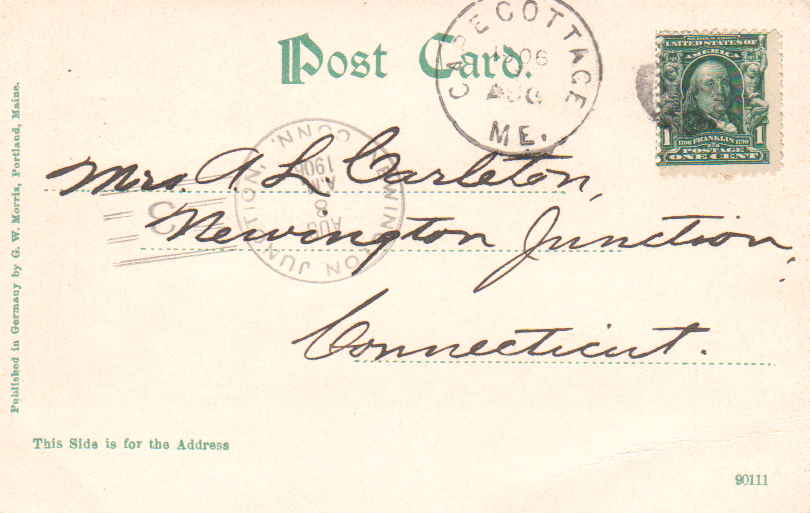 Post Card.
CAPE COTTAGE
1906
AUG
ME.
UNITED STATES OF
AMERICA
1706 FRANKLIN 1790
1 POSTAGE 1
ONE CENT
NEWINGTON JUNCTION,
CONN.
AUG
8
1906
Mrs. A. L. Carleton,
Newington Junction,
Connecticut.
Published in Germany by G. W. Morris, Portland, Maine.
This Side is for the Address
90111